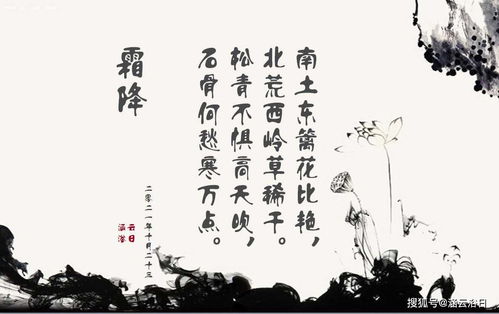 霜降
南土东篱花比艳，
北荒西岭草稀干。
松青不惧高天吹，
石骨何愁寒万点。
二零二一年十月二十三
涵云
浴日
搜狐号@涵云浴日